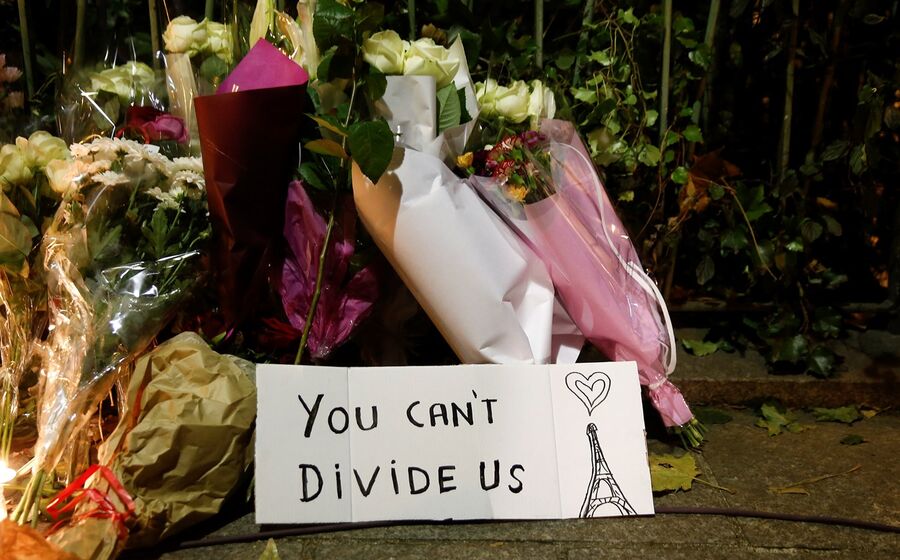 YOU CAN'T
DIVIDE US